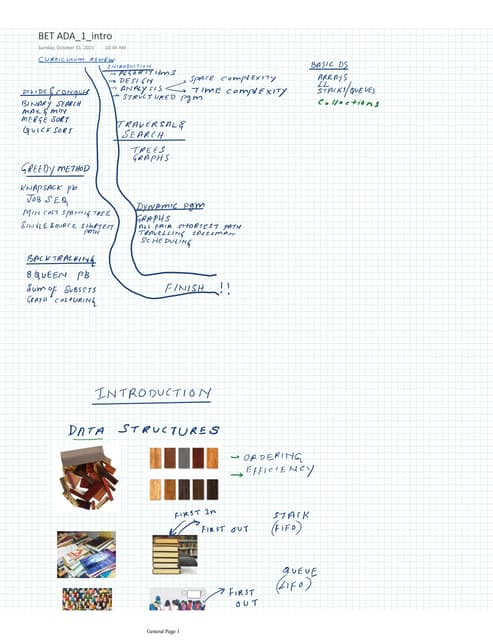 BET ADA_1_intro
Sunday, October 31, 2021 10:46 AM
CURRICULUM REVIEW
INTRODUCTION
→ ALGORITHMS
→ DESIGN
→ ANALYSIS
→ STRUCTURED pgm
SPACE COMPLEXITY
TIME COMPLEXITY
BASIC DS
ARRAYS
LL
STACKS/QUEUES
Collections
DIVIDE & CONQUER
BINARY SEARCH
MAX & MIN
MERGE SORT
QUICK SORT
TRAVERSAL &
SEARCH
TREES
GRAPHS
GREEDY METHOD
KNAPSACK pb
JOB SEQ
MIN COST SPANNING TREE
SINGLE SOURCE SHORTEST
PATH
DYNAMIC pgm
GRAPHS
ALL PAIR SHORTEST PATH
TRAVELLING SALESMAN
SCHEDULING
BACKTRACKING
8 QUEEN PB
SUM OF SUBSETS
GRAPH COLOURING
FINISH !!
INTRODUCTION
DATA STRUCTURES
→ ORDERING
→ EFFICIENCY
FIRST In
FIRST OUT
STACK
(FIFO)
QUEUE
(LIFO)
FIRST
OUT
General Page 1